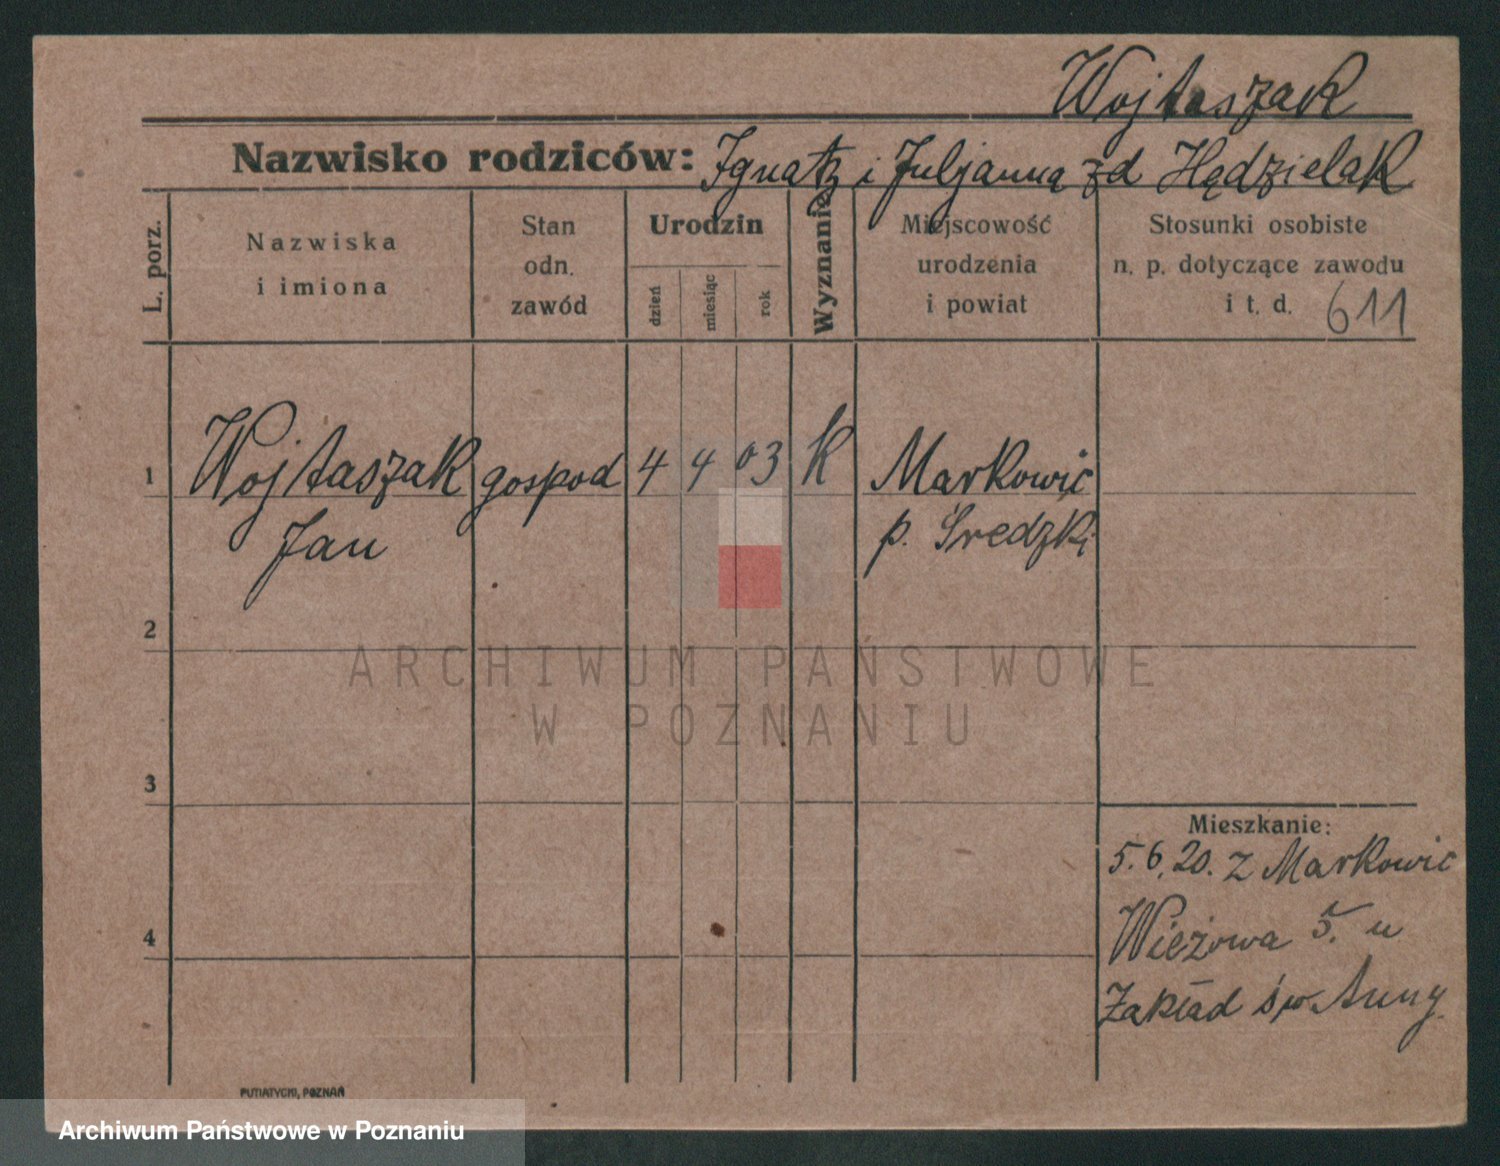 Wojtaszak
Nazwisko rodziców: Ignatz i Juljanna zd Hądzielak
L. porz.
Nazwiska
i imiona
Stan
odn.
zawód
Urodzin
dzień
miesiąc
rok
Wyznanie
Miejscowość
urodzenia
i powiat
Stosunki osobiste
n. p. dotyczące zawodu
i t. d. 611
1 Wojtaszak gospod 4 4 03 k Markowic
Jan p. Średzki
2
ARCHIWUM PAŃSTWOWE
W POZNANIU
3
Mieszkanie:
5.6.20. z Markowic
Wieżowa 5. u
4
Zakład św Anny
PUTIATYCKI, POZNAŃ
Archiwum Państwowe w Poznaniu